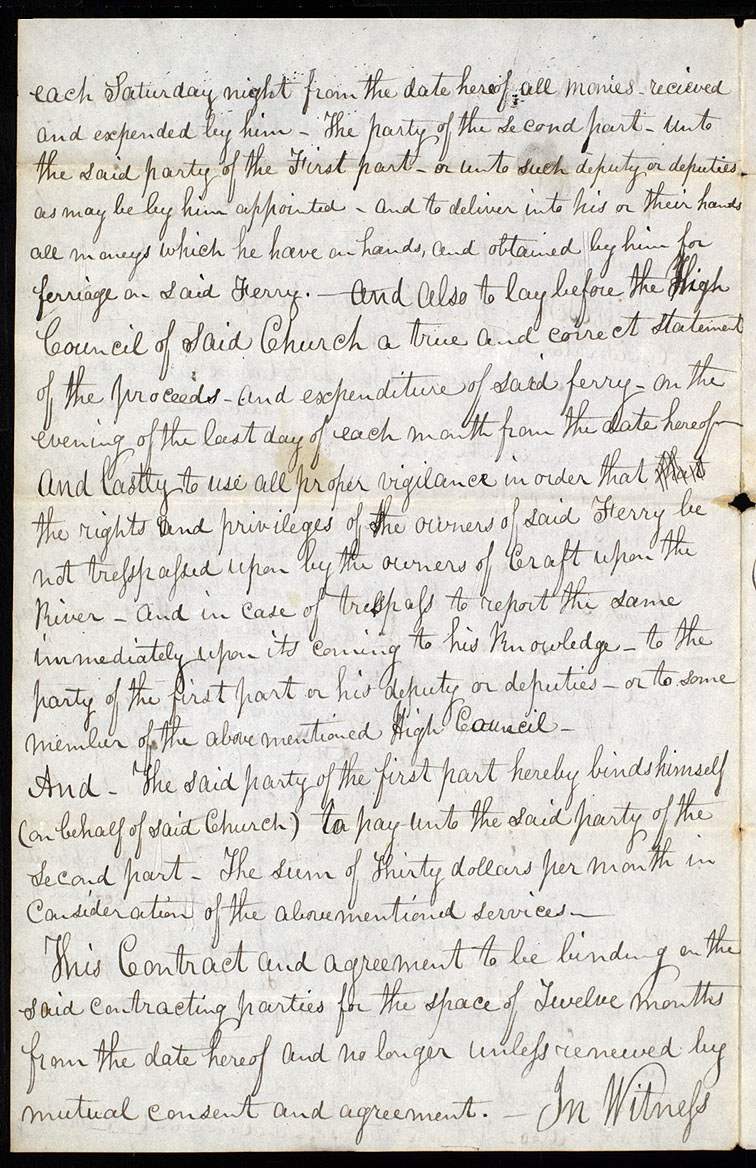 each Saturday night from the date hereof all monies - recieved
and expended by him - The party of the second part - unto
the said party of the First part - or unto such deputy or deputies -
as may be by him appointed - and to deliver into his or their hands
all moneys which he have on hands, and obtained by him for
ferriage on said Ferry. - and also to lay before the High
Council of said Church a true and correct statement
of the proceeds - and expenditure of said ferry - on the
evening of the last day of each month from the date hereof -
And lastly to use all proper vigilance in order that that
the rights and privileges of the owners of said Ferry be
not tresspassed upon by the owners of Craft upon the
River - and in case of tresspass to report the same
immediately upon its coming to his Knowledge - to the
party of the first part or his deputy or deputies - or to some
member of the above mentioned High Council -
And - The said party of the first part hereby binds himself
(on behalf of said Church) to pay unto the said party of the
second part - The sum of Thirty dollars per month in
consideration of the abovementioned services -
This Contract and agreement to be binding on the
said contracting parties for the space of Twelve months
from the date hereof and no longer unless renewed by
mutual consent and agreement. - In Witness